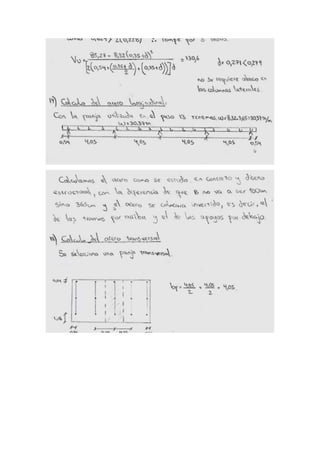 Vu = 85,27 - 8,32(0,35+d)² = 130,6
d= 0,271<0,279
no se requiere abaco en
las columnas laterales.
17) Calculo del acero longitudinal.
Con la franja utilizada en el paso 13 tenemos
0,54 4,05 4,05 4,05 4,05 0,54
Calculamos el acero como se estudio en concreto y diseño
estructural, con la diferencia de que B no va a ser 100cm
sino 365cm y el acero se colocara invertido, es decir, el
de los tramos por arriba y el de los apoyos por debajo.
18) Calculo del acero transversal
Se selecciona una franja transversal.
bf= 4,05/2 + 4,05/2 = 4,05.